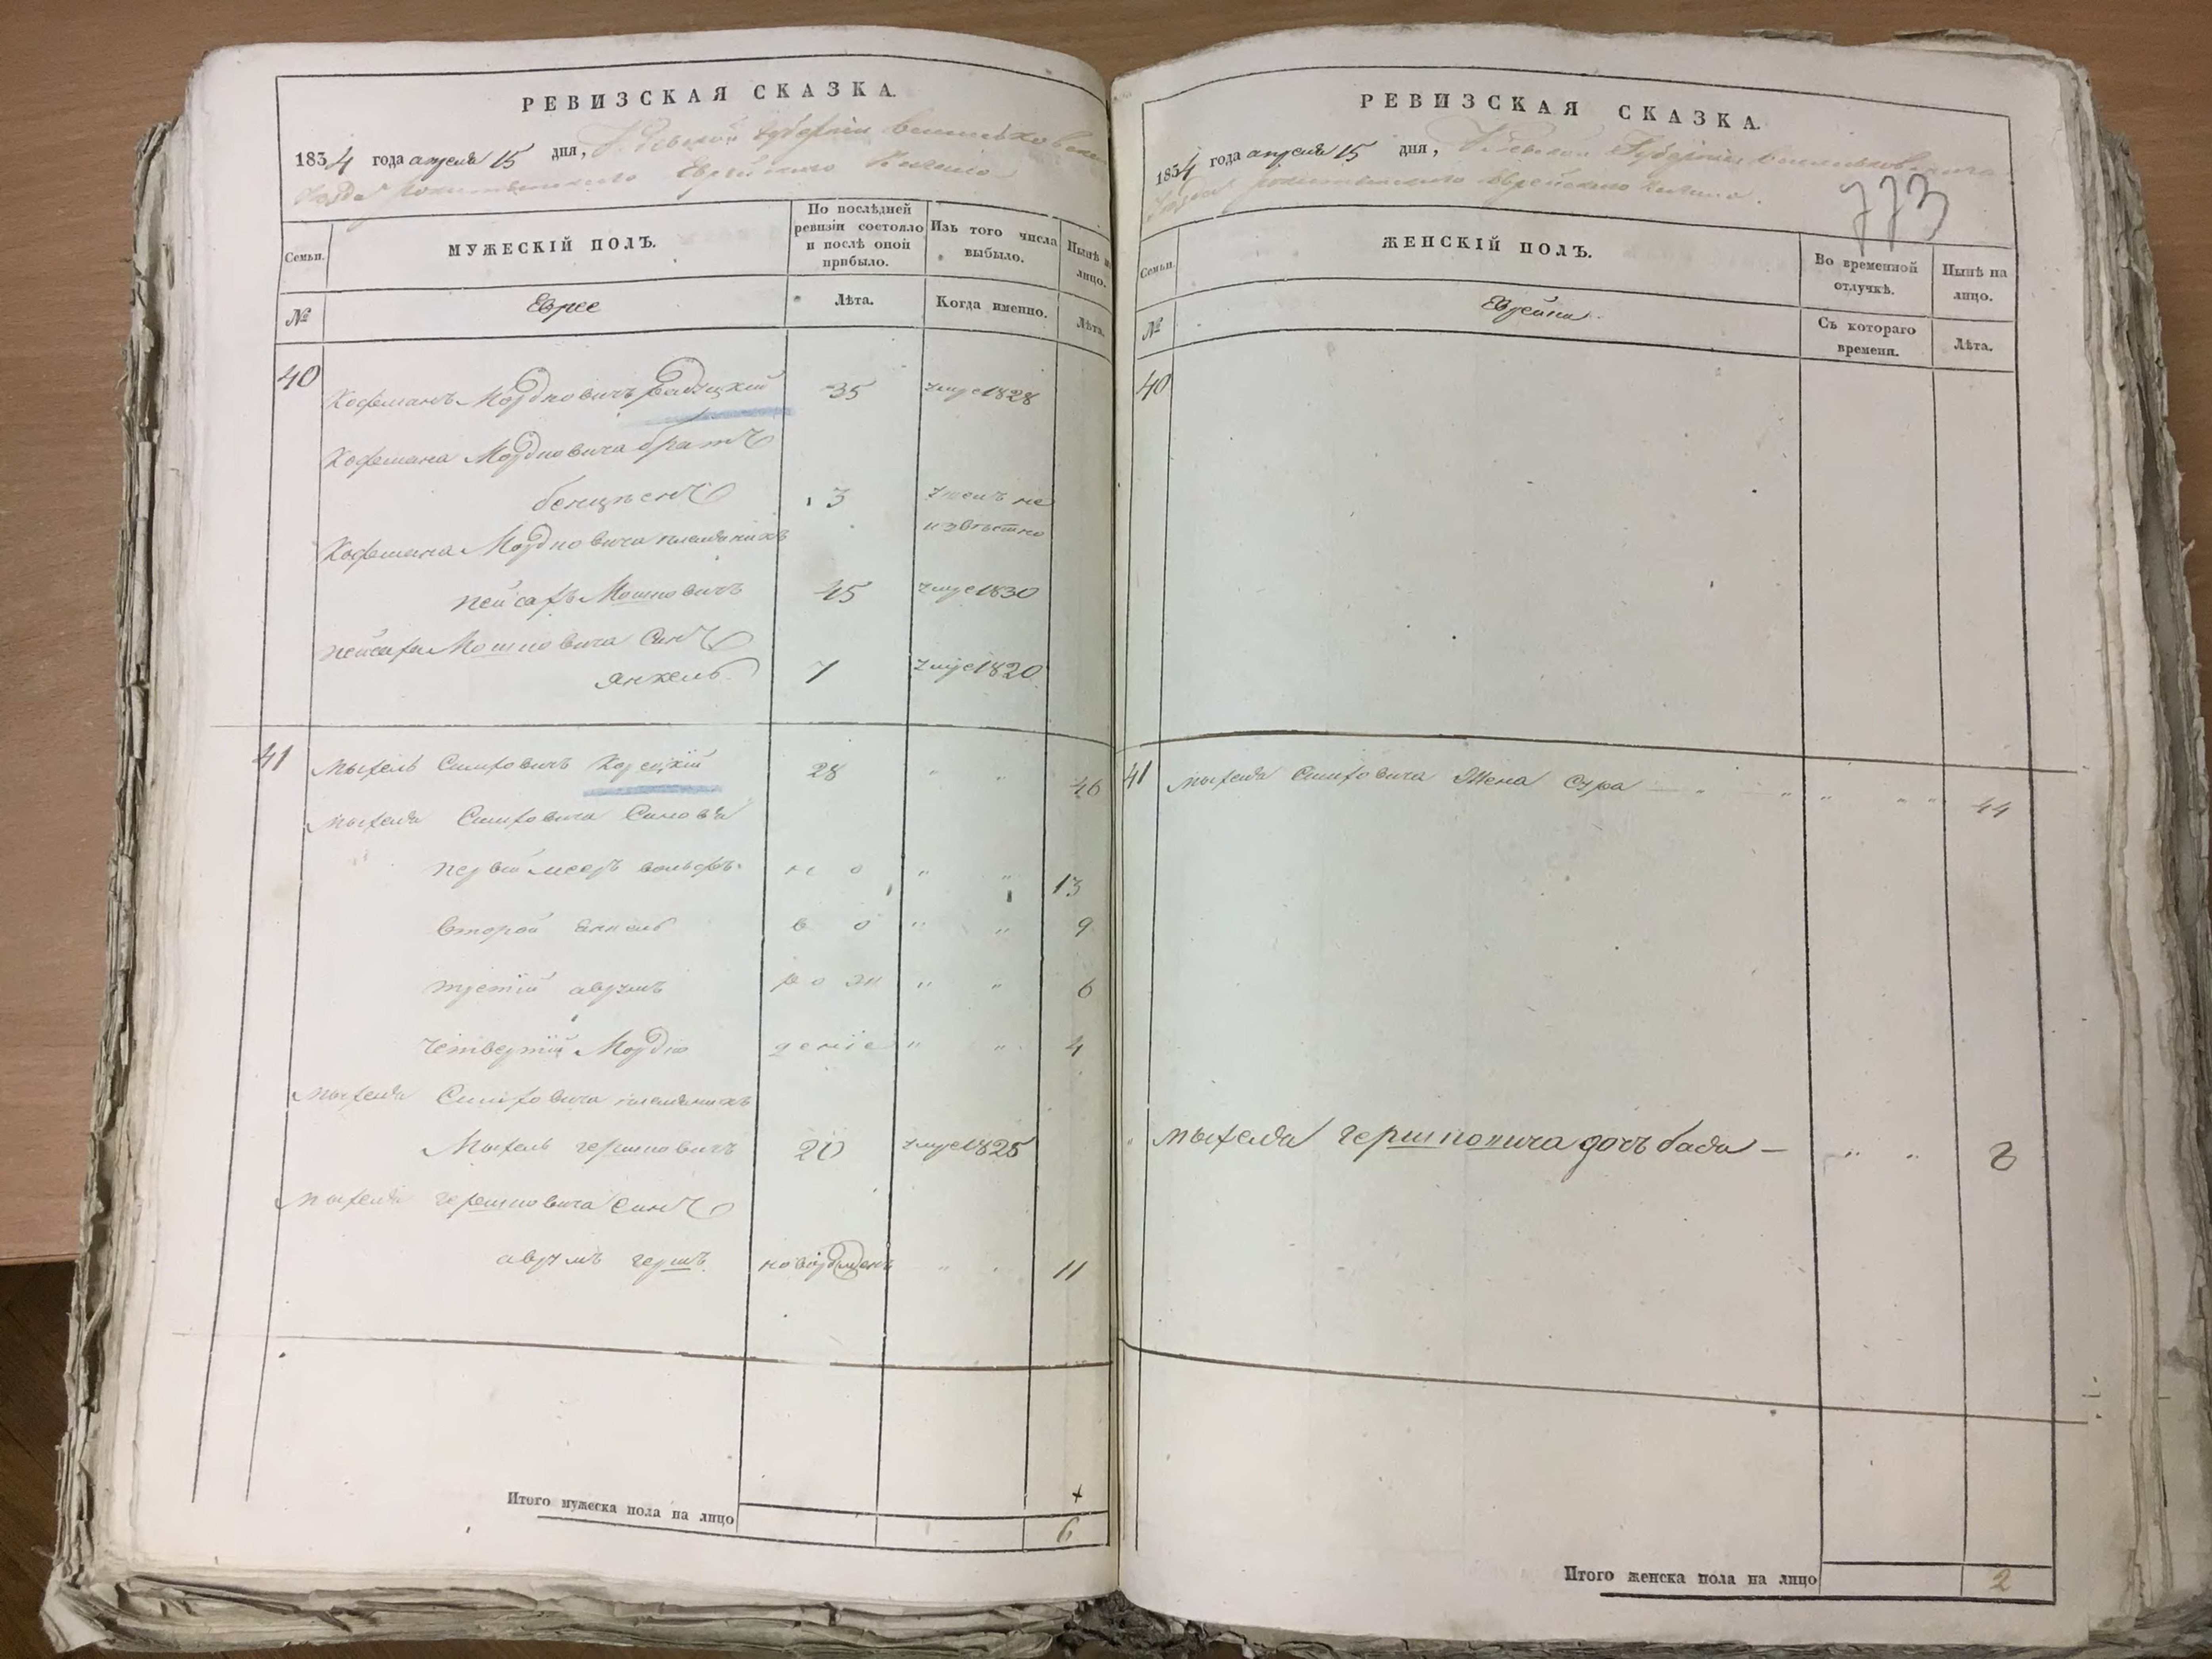 РЕВИЗСКАЯ СКАЗКА.
1834 года апреля 15 дня, Киевской Губернии Васильковского
Уезда Рокитянского Еврейского Кагала
Семьи.
МУЖЕСКІЙ ПОЛЪ.
По послѣдней ревизіи состояло и послѣ оной прибыло.
Изъ того числа выбыло.
Нынѣ на лицо.
№
Еврее
Лѣта.
Когда именно.
Лѣта.
40
Кофманъ Мордковичъ 35 умре 1828
Кофмана Мордковича братъ
бенционъ 3 уменъ не
извѣстно
Кофмана Мордковича племяникъ
пейсахъ Мошковичъ 45 умре 1830
пейсаха Мошковича Синъ
Янкель 7 умре 1820
41 Мыхель Симховичъ Корецкій 28 " " 46
Мыхеля Симховича Синовя
первій мееръ вольфъ н о " " 13
второй янкель в о " " 9
третій аврумъ р о ж " " 6
четвертій Мордко деніе " " 4
Мыхеля Симховича племяникъ
Мыхель гершковичъ 20 умре 1825
Мыхеля гершковича Синъ
аврумъ гершъ новорожденъ " " 11
Итого мужеска пола на лицо 6
РЕВИЗСКАЯ СКАЗКА.
1834 года апреля 15 дня, Киевской Губернии Васильковского
Уезда Рокитянского Еврейского Кагала.
773
Семьи.
ЖЕНСКІЙ ПОЛЪ.
Во временной отлучкѣ.
Нынѣ на лицо.
№
Еврейки
Съ котораго времени.
Лѣта.
40
41 Мыхеля Симховича Жена Сура " " " " " 44
" Мыхеля гершковича дочъ бася — " " 8
Итого женска пола на лицо 2